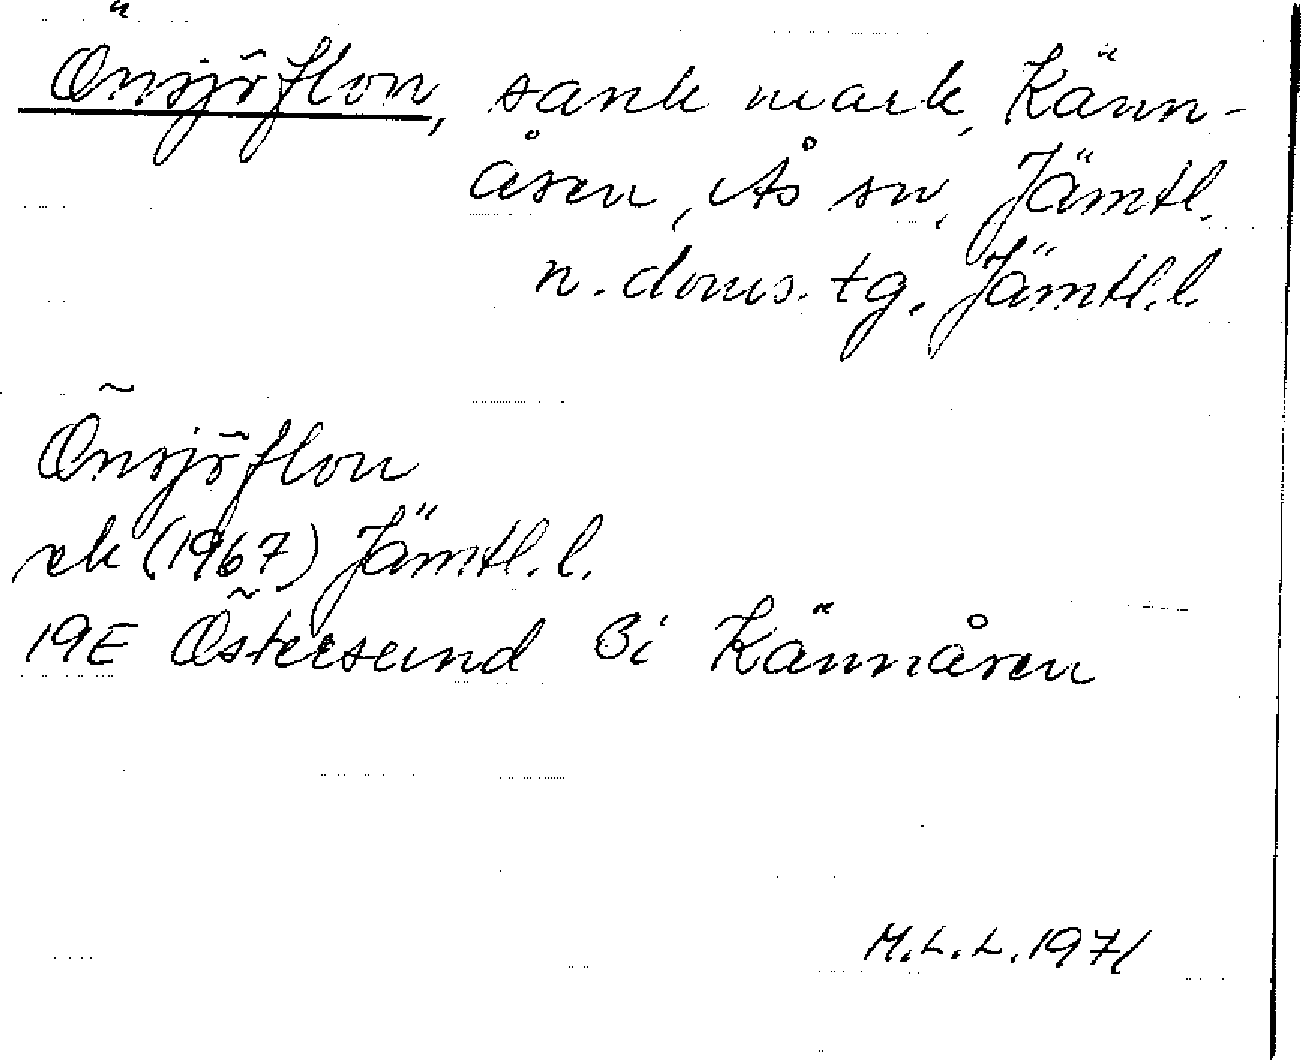 Önsjöflon, sank mark, Känn-
åsen, Ås sn, Jämtl.
n. doms. tg. Jämtl. l.
Önsjöflon
ek (1967) Jämtl. l.
19E Östersund 3i Kännåsen
M.L.L. 1971